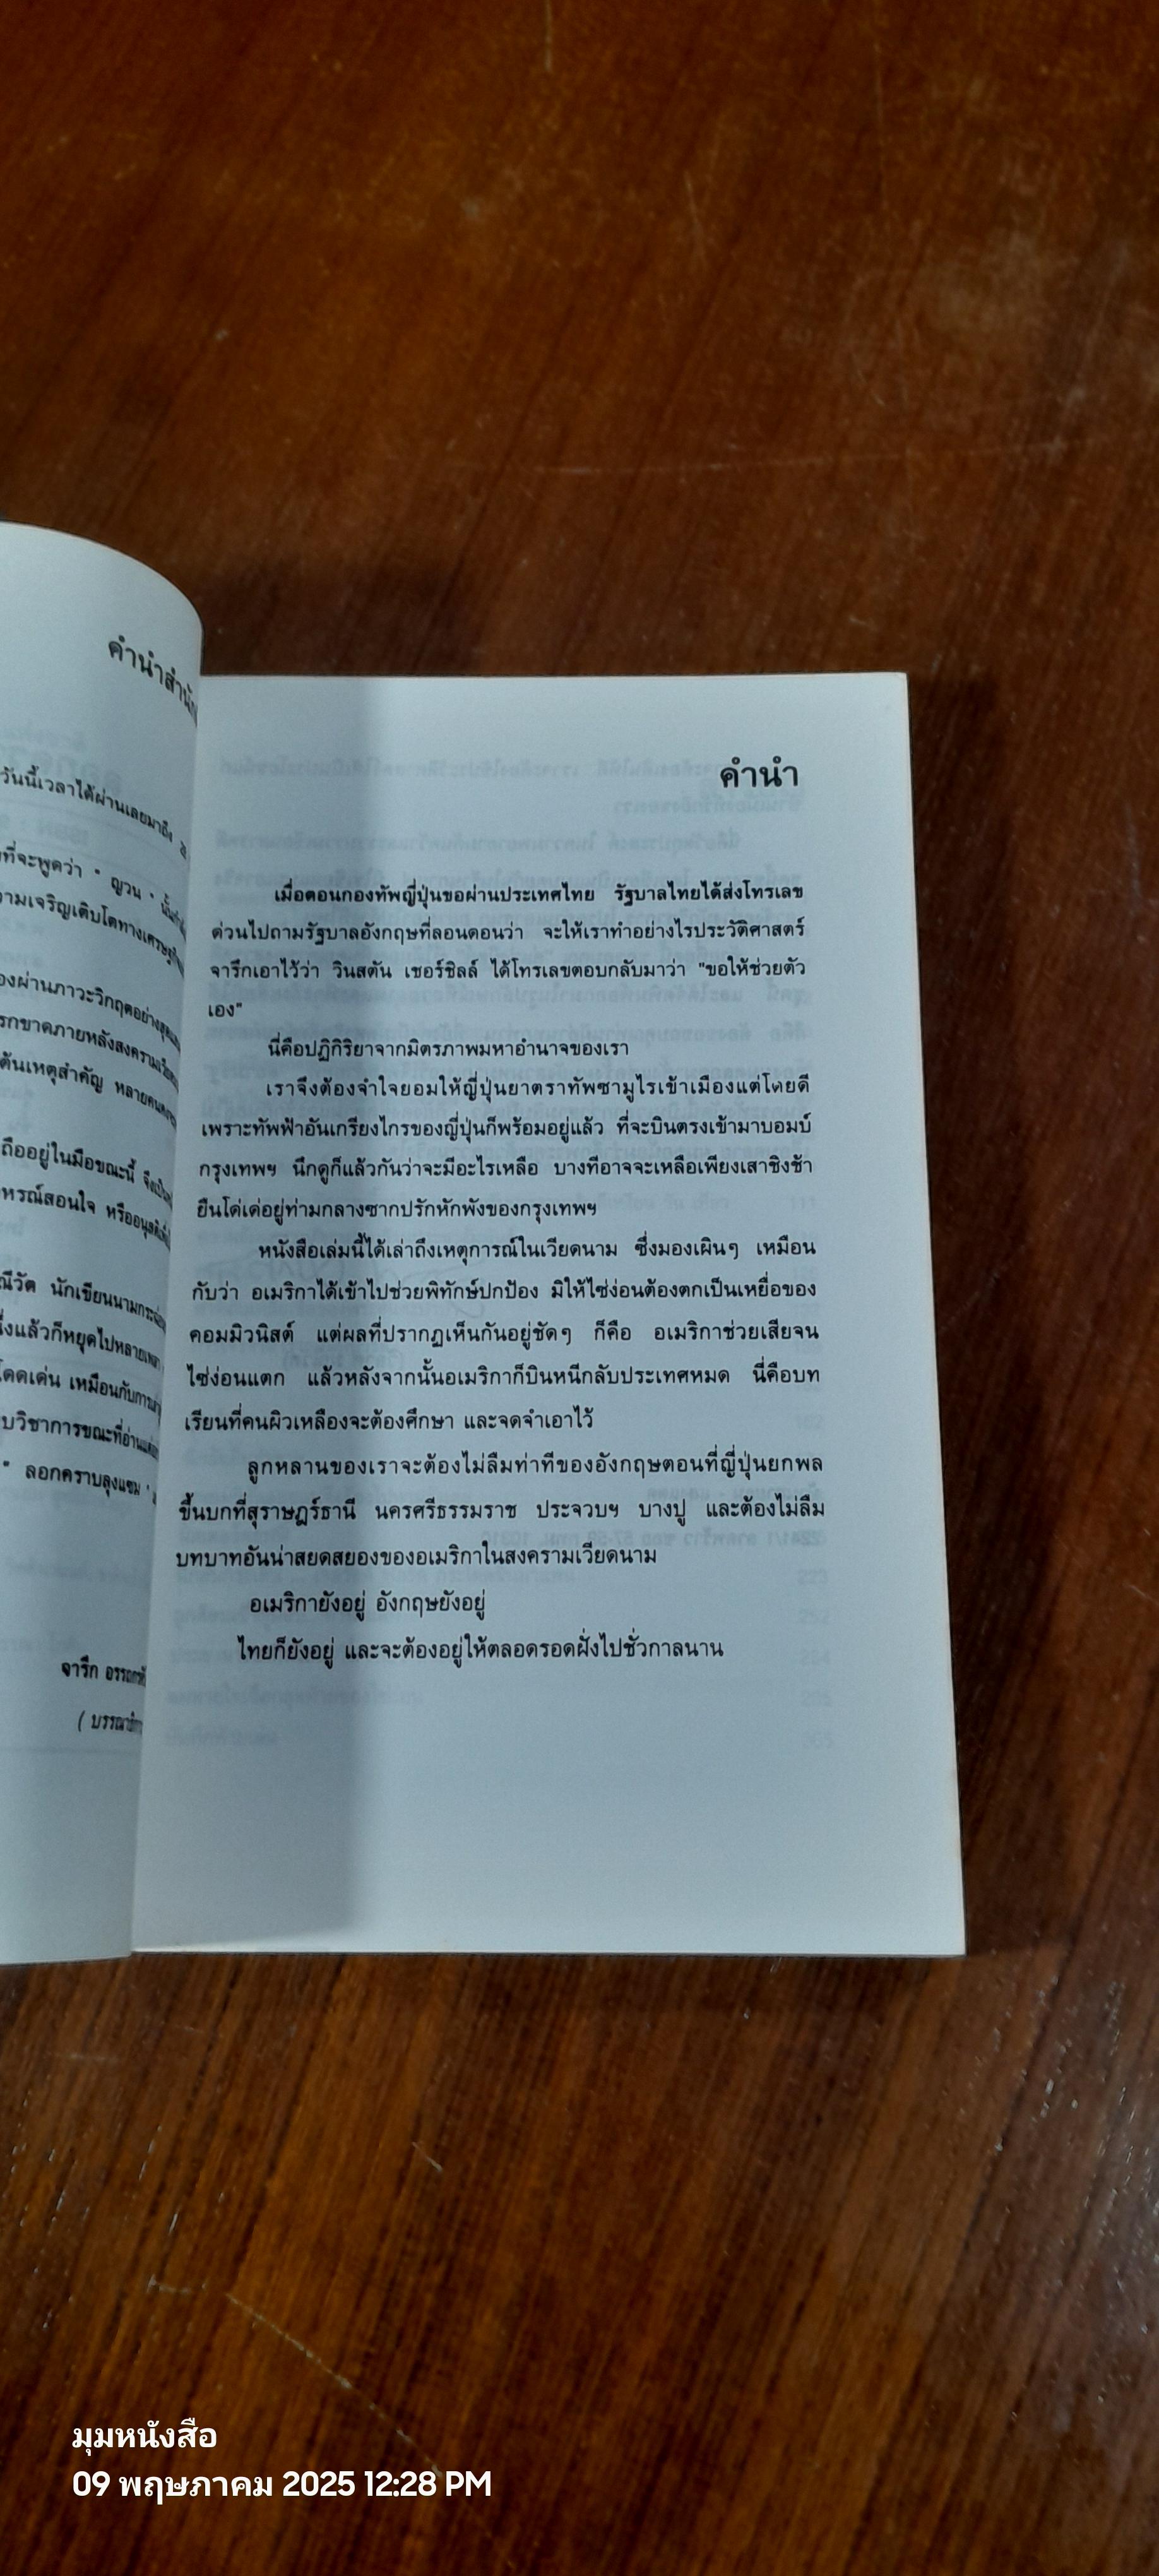 คำนำสำนัก
วันนี้เวลาได้ผ่านเลยมาถึง
ที่จะพูดว่า " ญวน "
วามเจริญเติบโตทางเศรษฐกิจ
องผ่านภาวะวิกฤตอย่าง
รกขาดภายหลังสงคราม
ต้นเหตุสำคัญ หลายคน
ถืออยู่ในมือขณะนี้
หรณ์สอนใจ
ณีวัต นักเขียนนาม
แล้วก็หยุดไปหลาย
โดดเด่น เหมือนกับการ
บวิชาการขณะที่อ่าน
" ลอกคราบลุงแซม "
จารึก
( บรรณาธิกา
คำนำ
เมื่อตอนกองทัพญี่ปุ่นขอผ่านประเทศไทย รัฐบาลไทยได้ส่งโทรเลข
ด่วนไปถามรัฐบาลอังกฤษที่ลอนดอนว่า จะให้เราทำอย่างไรประวัติศาสตร์
จารึกเอาไว้ว่า วินสตัน เชอร์ชิลล์ ได้โทรเลขตอบกลับมาว่า "ขอให้ช่วยตัว
เอง"
นี่คือปฏิกิริยาจากมิตรภาพมหาอำนาจของเรา
เราจึงต้องจำใจยอมให้ญี่ปุ่นยาตราทัพซามูไรเข้าเมืองแต่โดยดี
เพราะทัพฟ้าอันเกรียงไกรของญี่ปุ่นก็พร้อมอยู่แล้ว ที่จะบินตรงเข้ามาบอมบ์
กรุงเทพฯ นึกดูก็แล้วกันว่าจะมีอะไรเหลือ บางทีอาจจะเหลือเพียงเสาชิงช้า
ยืนโด่เด่อยู่ท่ามกลางซากปรักหักพังของกรุงเทพฯ
หนังสือเล่มนี้ได้เล่าถึงเหตุการณ์ในเวียดนาม ซึ่งมองเผินๆ เหมือน
กับว่า อเมริกาได้เข้าไปช่วยพิทักษ์ปกป้อง มิให้ไซ่ง่อนต้องตกเป็นเหยื่อของ
คอมมิวนิสต์ แต่ผลที่ปรากฏเห็นกันอยู่ชัดๆ ก็คือ อเมริกาช่วยเสียจน
ไซ่ง่อนแตก แล้วหลังจากนั้นอเมริกาก็บินหนีกลับประเทศหมด นี่คือบท
เรียนที่คนผิวเหลืองจะต้องศึกษา และจดจำเอาไว้
ลูกหลานของเราจะต้องไม่ลืมท่าทีของอังกฤษตอนที่ญี่ปุ่นยกพล
ขึ้นบกที่สุราษฎร์ธานี นครศรีธรรมราช ประจวบฯ บางปู และต้องไม่ลืม
บทบาทอันน่าสยดสยองของอเมริกาในสงครามเวียดนาม
อเมริกายังอยู่ อังกฤษยังอยู่
ไทยก็ยังอยู่ และจะต้องอยู่ให้ตลอดรอดฝั่งไปชั่วกาลนาน
มุมหนังสือ
09 พฤษภาคม 2025 12:28 PM